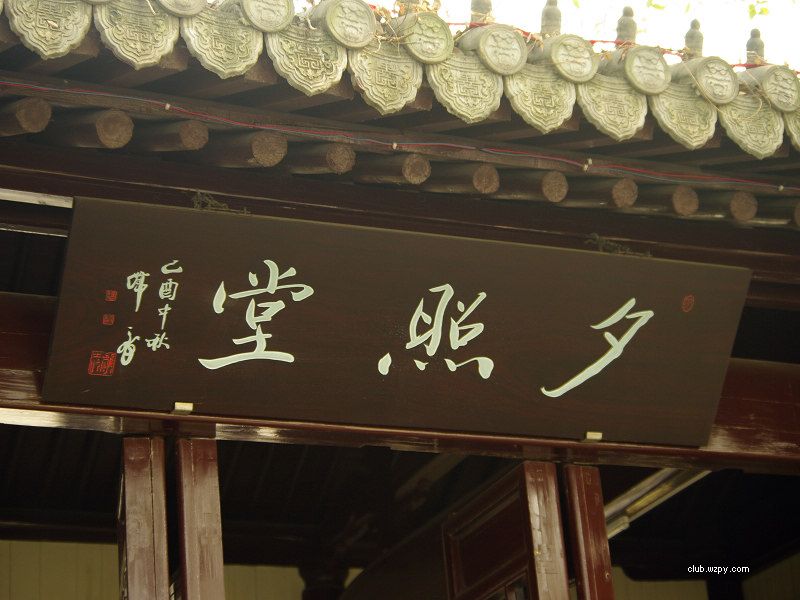 夕照堂
乙酉中秋
club.wzpy.com